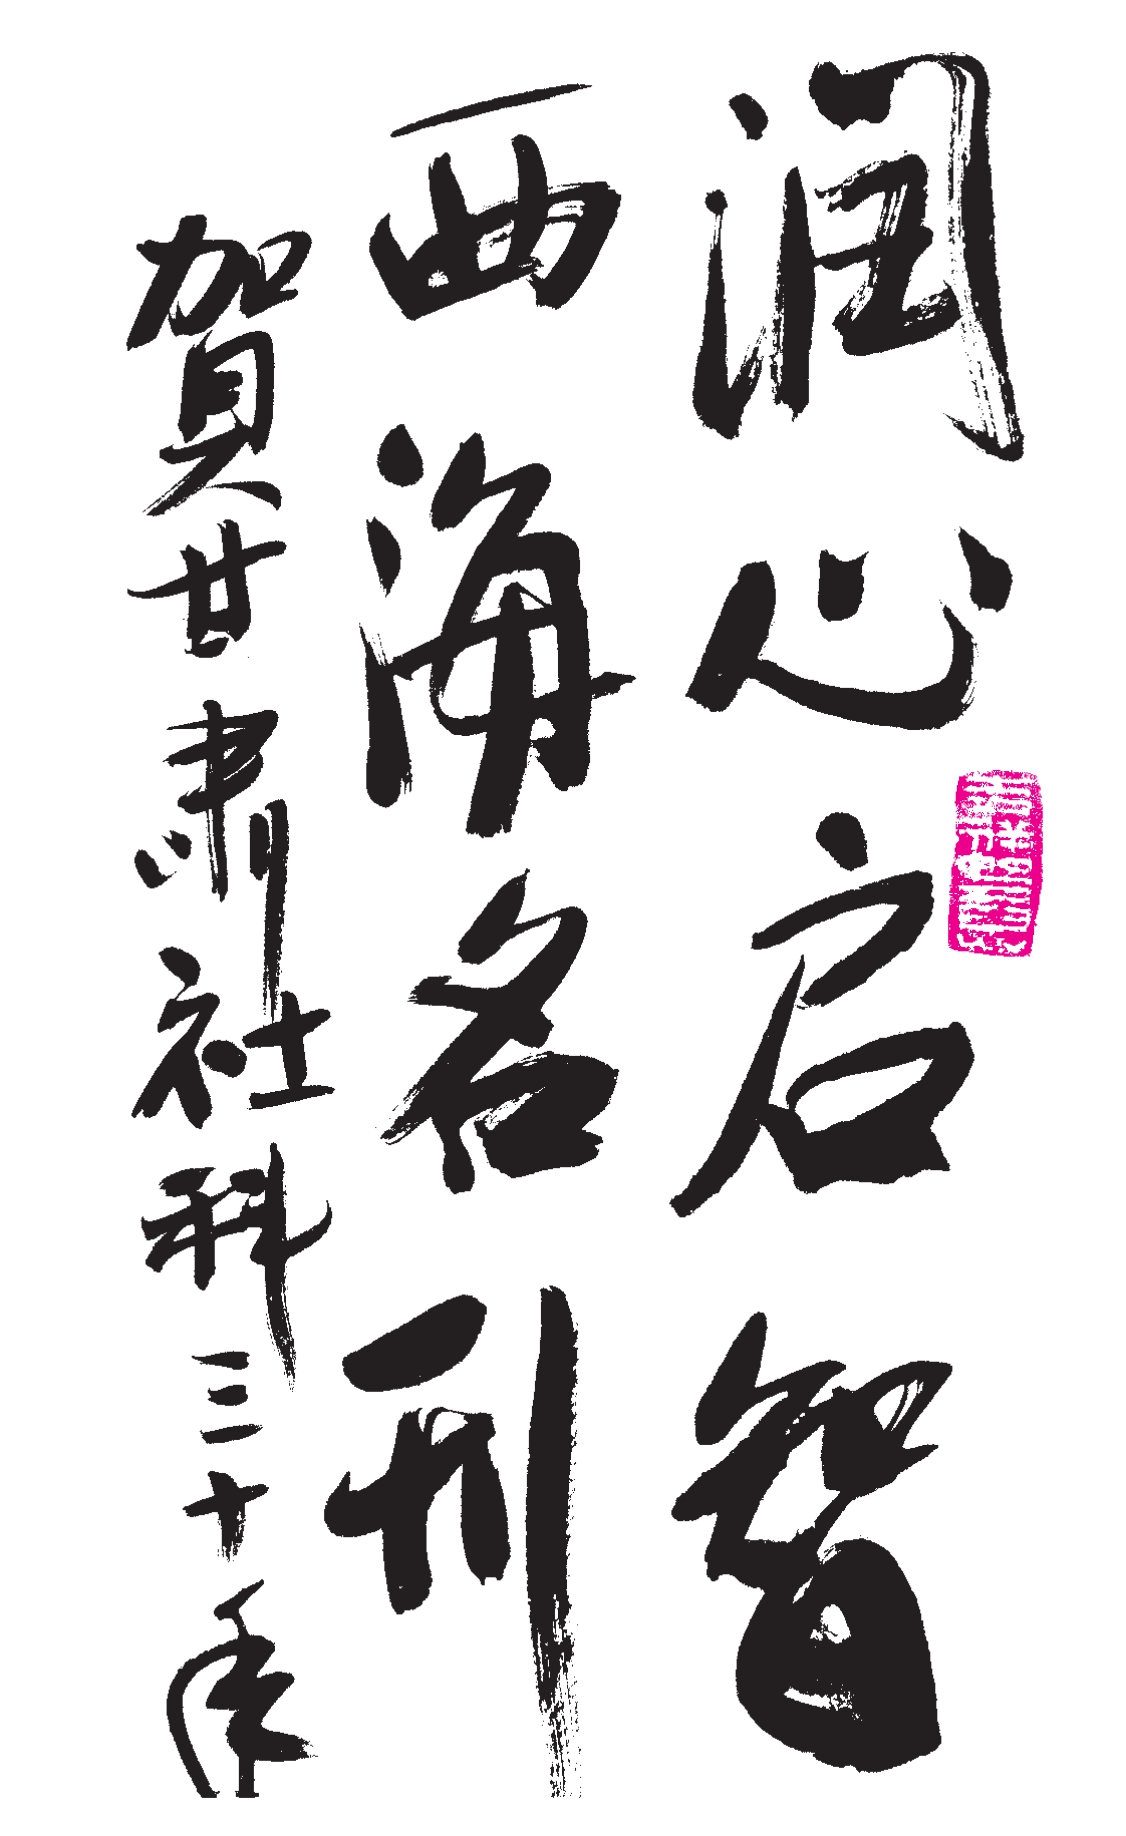 润心启智
西海名刊
賀甘肃社科三十年